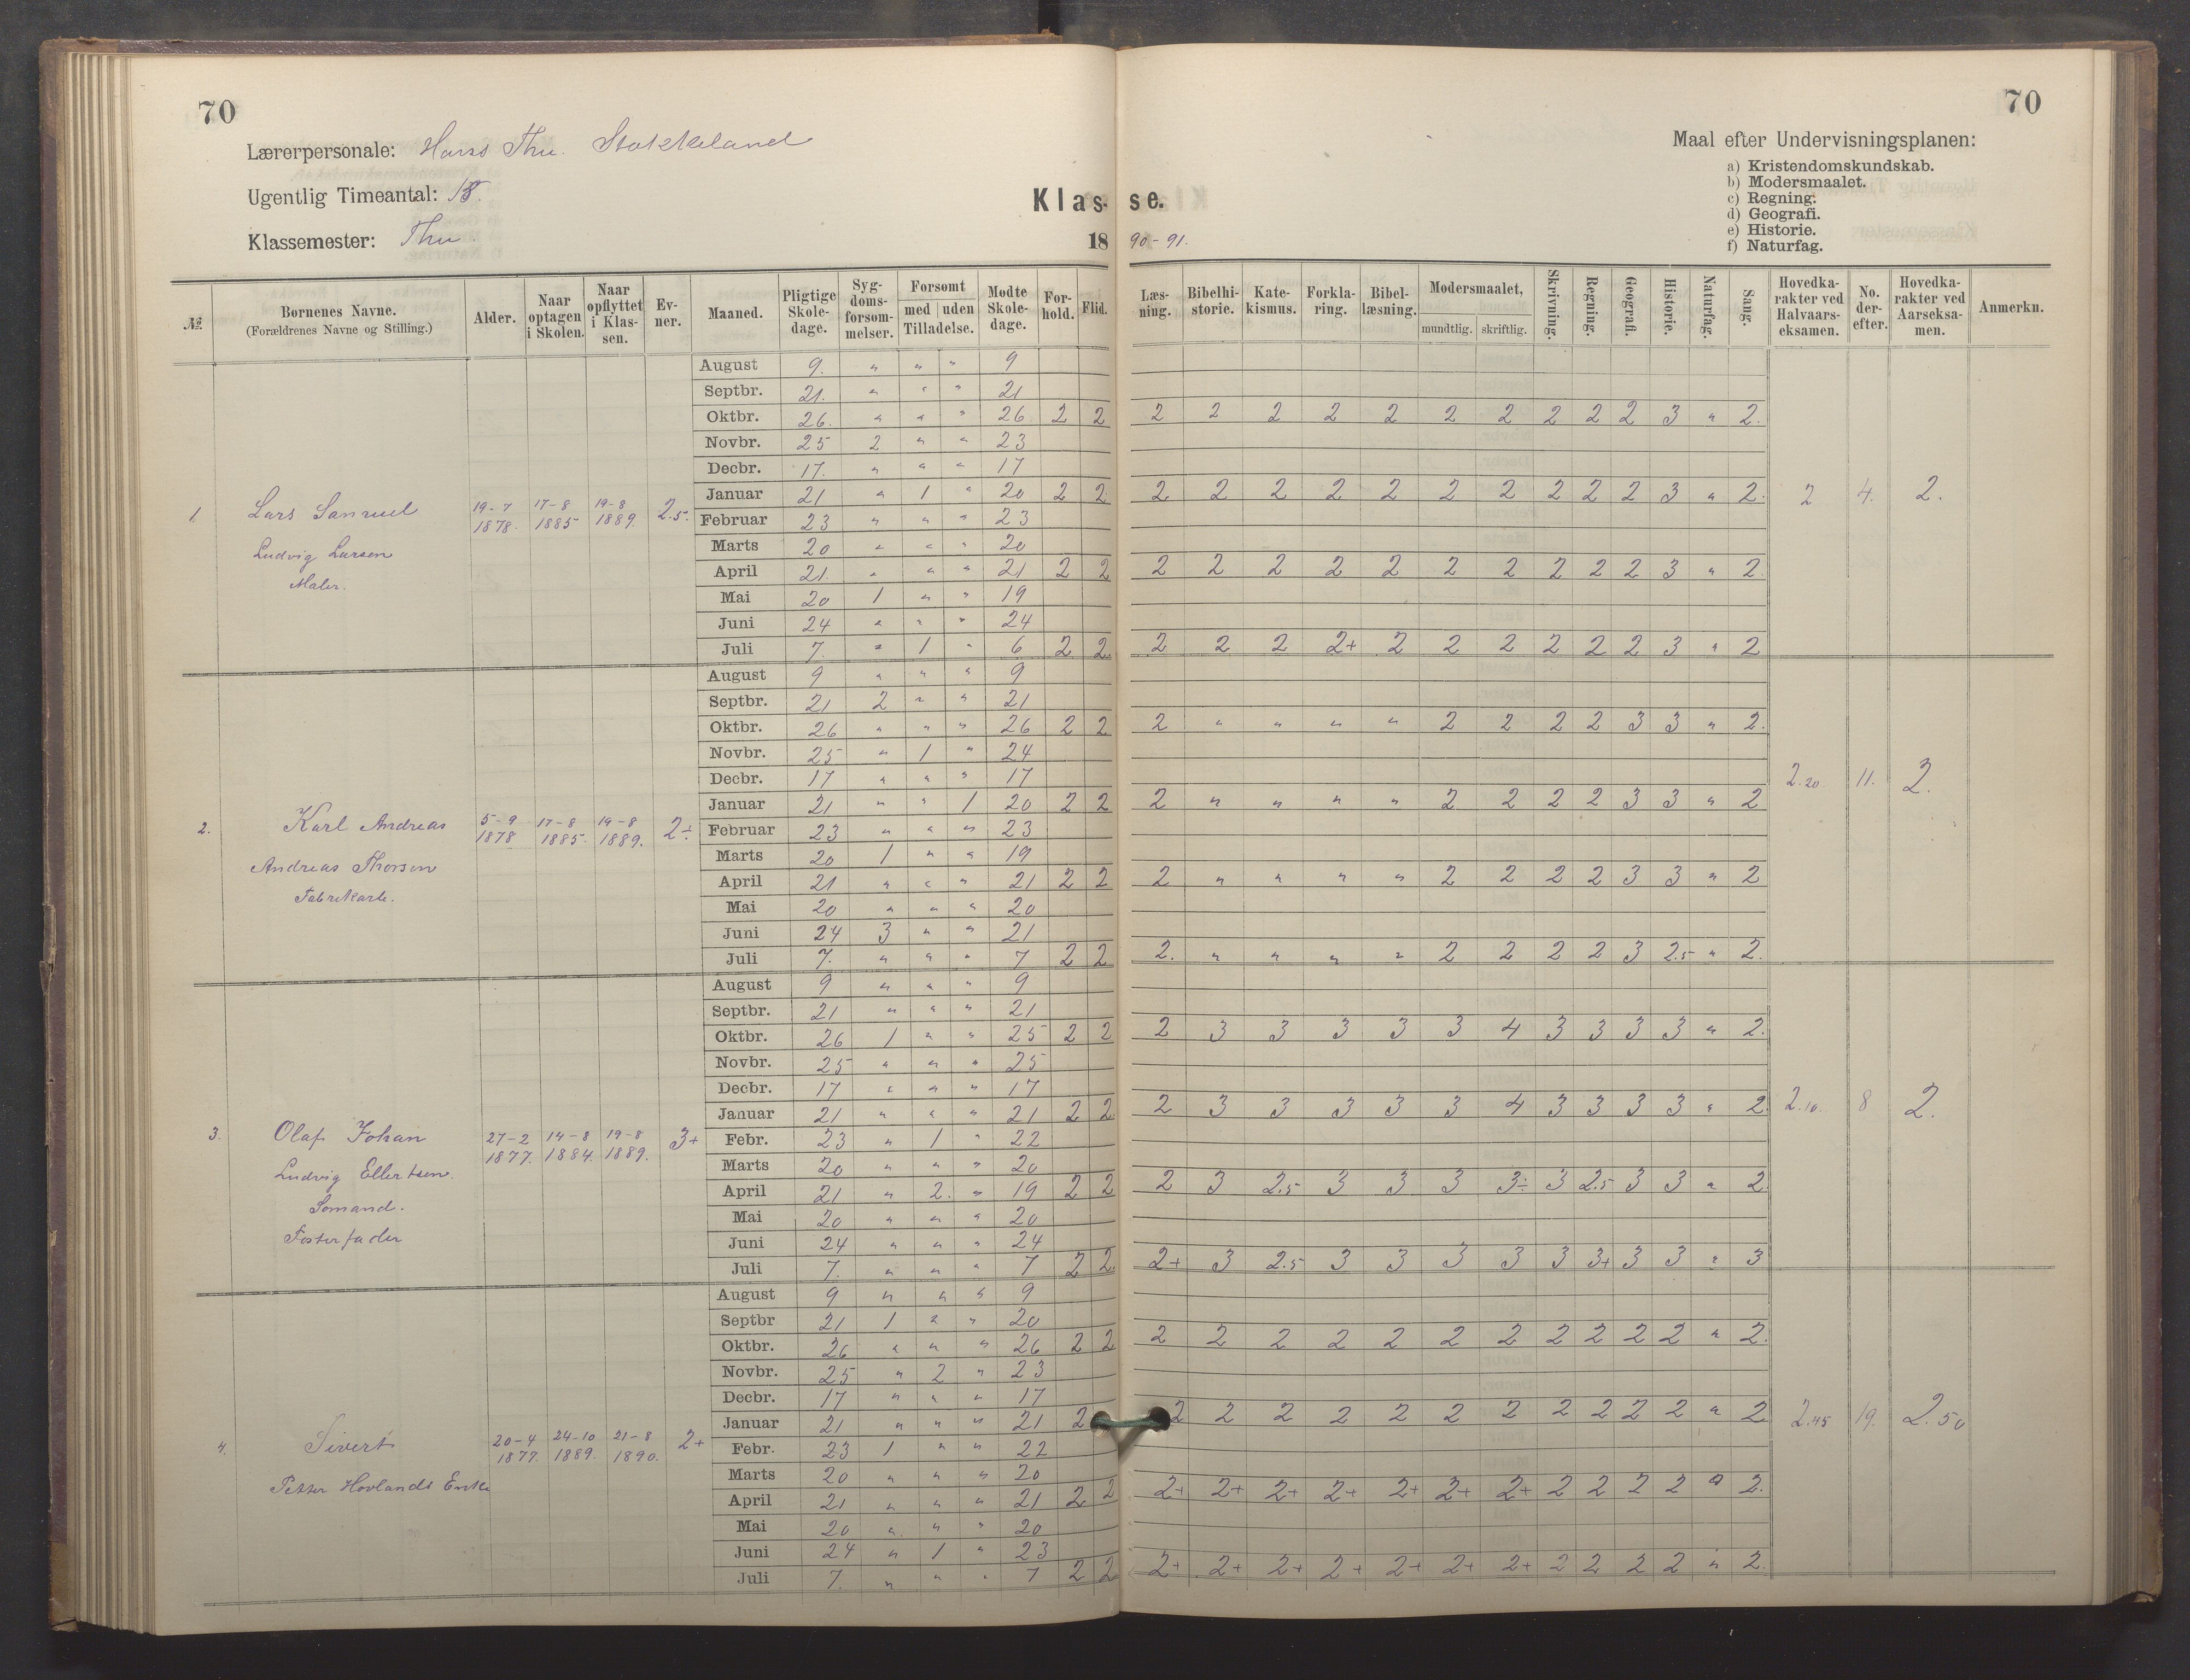 70
70
Lærerpersonale: Hans Thu. Stokkeland
Ugentlig Timeantal:
Klassemester: Thu
Klas- se.
18 90-91.
Maal efter Undervisningsplanen:
a) Kristendomskundskab.
b) Modersmaalet.
c) Regning.
d) Geografi.
e) Historie.
f) Naturfag.
№ Børnenes Navne. (Forældrenes Navne og Stilling.) Alder. Naar optagen i Skolen. Naar opflyttet i Klassen. Evner. Maaned. Pligtige Skoledage. Sygdomsforsømmelser. Forsømt med uden Tilladelse. Mødte Skoledage. Forhold. Flid. Læsning. Bibelhistorie. Katekismus. Forklaring. Bibellæsning. Modersmaalet, mundtlig. skriftlig. Skrivning. Regning. Geografi. Historie. Naturfag. Sang. Hovedkarakter ved Halvaarseksamen. No. derefter. Hovedkarakter ved Aarseksamen. Anmerkn.
1. Lars Samuel
Ludvig Larsen
Maler.
19-7 1878. 17-8 1885 19-8 1889. 2.5.
August 9. " " " 9
Septbr. 21. " " " 21
Oktbr. 26. " " " 26 2 2 2 2 2 2 2 2 2 2 2 2 3 " 2.
Novbr. 25 2 " " 23
Decbr. 17. " " " 17
Januar 21 " 1 " 20 2 2 2 2 2 2 2 2 2 2 2 2 3 " 2. 2 4. 2.
Februar 23 " " " 23
Marts 20 " " " 20
April 21. " " " 21 2 2 2 2 2 2 2 2 2 2 2 2 3 " 2.
Mai 20 1 " " 19
Juni 24 " " " 24
Juli 7. " 1 " 6 2 2. 2 2 2 2+ 2 2 2 2 2 2 3 " 2
2. Karl Andreas
Andreas Thorsen
Fabrikarb.
5-9 1878 17-8 1885. 19-8 1889. 2÷
August 9 " " " 9
Septbr. 21 2 " " 21
Oktbr. 26 " " " 26 2 2 2 " " " " 2 2 2 2 3 3 " 2.
Novbr. 25 " 1 " 24
Decbr. 17 " " " 17 2.20. 11. 2.
Januar 21 " " 1 20 2 2 2 " " " " 2 2 2 2 3 3 " 2
Februar 23 " " " 23
Marts 20 1 " " 19
April 21 " " " 21 2 2 2 " " " " 2 2 2 2 3 3 " 2
Mai 20 " " " 20
Juni 24 3 " " 21
Juli 7. " " " 7 2 2 2. " " " " 2 2 2 2 3 2.5 " 2.
3. Olaf Johan
Ludvig Ellertsen.
Sømand.
Fosterfader
27-2 1877. 14-8 1884. 19-8 1889. 3+
August 9 " " " 9
Septbr. 21 " " " 21
Oktbr. 26 1 " " 25 2 2 2 3 3 3 3 3 4 3 3 3 3 " 2.
Novbr. 25 " " " 25
Decbr. 17 " " " 17
Januar 21 " " " 21 2 2. 2 3 3 3 3 3 4 3 3 3 3 " 2. 2.10. 8 2.
Febr. 23 " 1 " 22
Marts 20 " " " 20
April 21 " 2. " 19 2 2 2 3 2.5 3 3 3 3÷ 3 2.5 3 3 " 2.
Mai 20 " " " 20
Juni 24 " " " 24
Juli 7. " " " 7 2 2. 2+ 3 2.5 3 3 3 3 3 3+ 3 3 " 3
4. Sivert
Petter Hovlands Enke
20-4 1877. 24-10 1889. 21-8 1890. 2+
August 9 " " " 9
Septbr 21 1 " " 20
Oktbr. 26 " " " 26 2 2 2 2 2 2 2 2 2 2 2 2 2 " 2.
Novbr. 25 " 2 " 23
Decbr. 17 " " " 17
Januar 21 " " " 21 2 2 2 2 2 2 2 2 2 2 2 2 " 2 2.45 19. 2.50
Febr. 23 1 " " 22
Marts 20 " " " 20
April 21 " " " 21 2 2 2+ 2+ 2+ 2+ 2+ 2+ 2+ 2 2 2 2 " 2.
Mai 20 " " " 20
Juni 24 " 1 " 23
Juli 7. " " " 7 2 2 2+ 2+ 2+ 2+ 2+ 2+ 2+ 2 2 2 2 " 2.